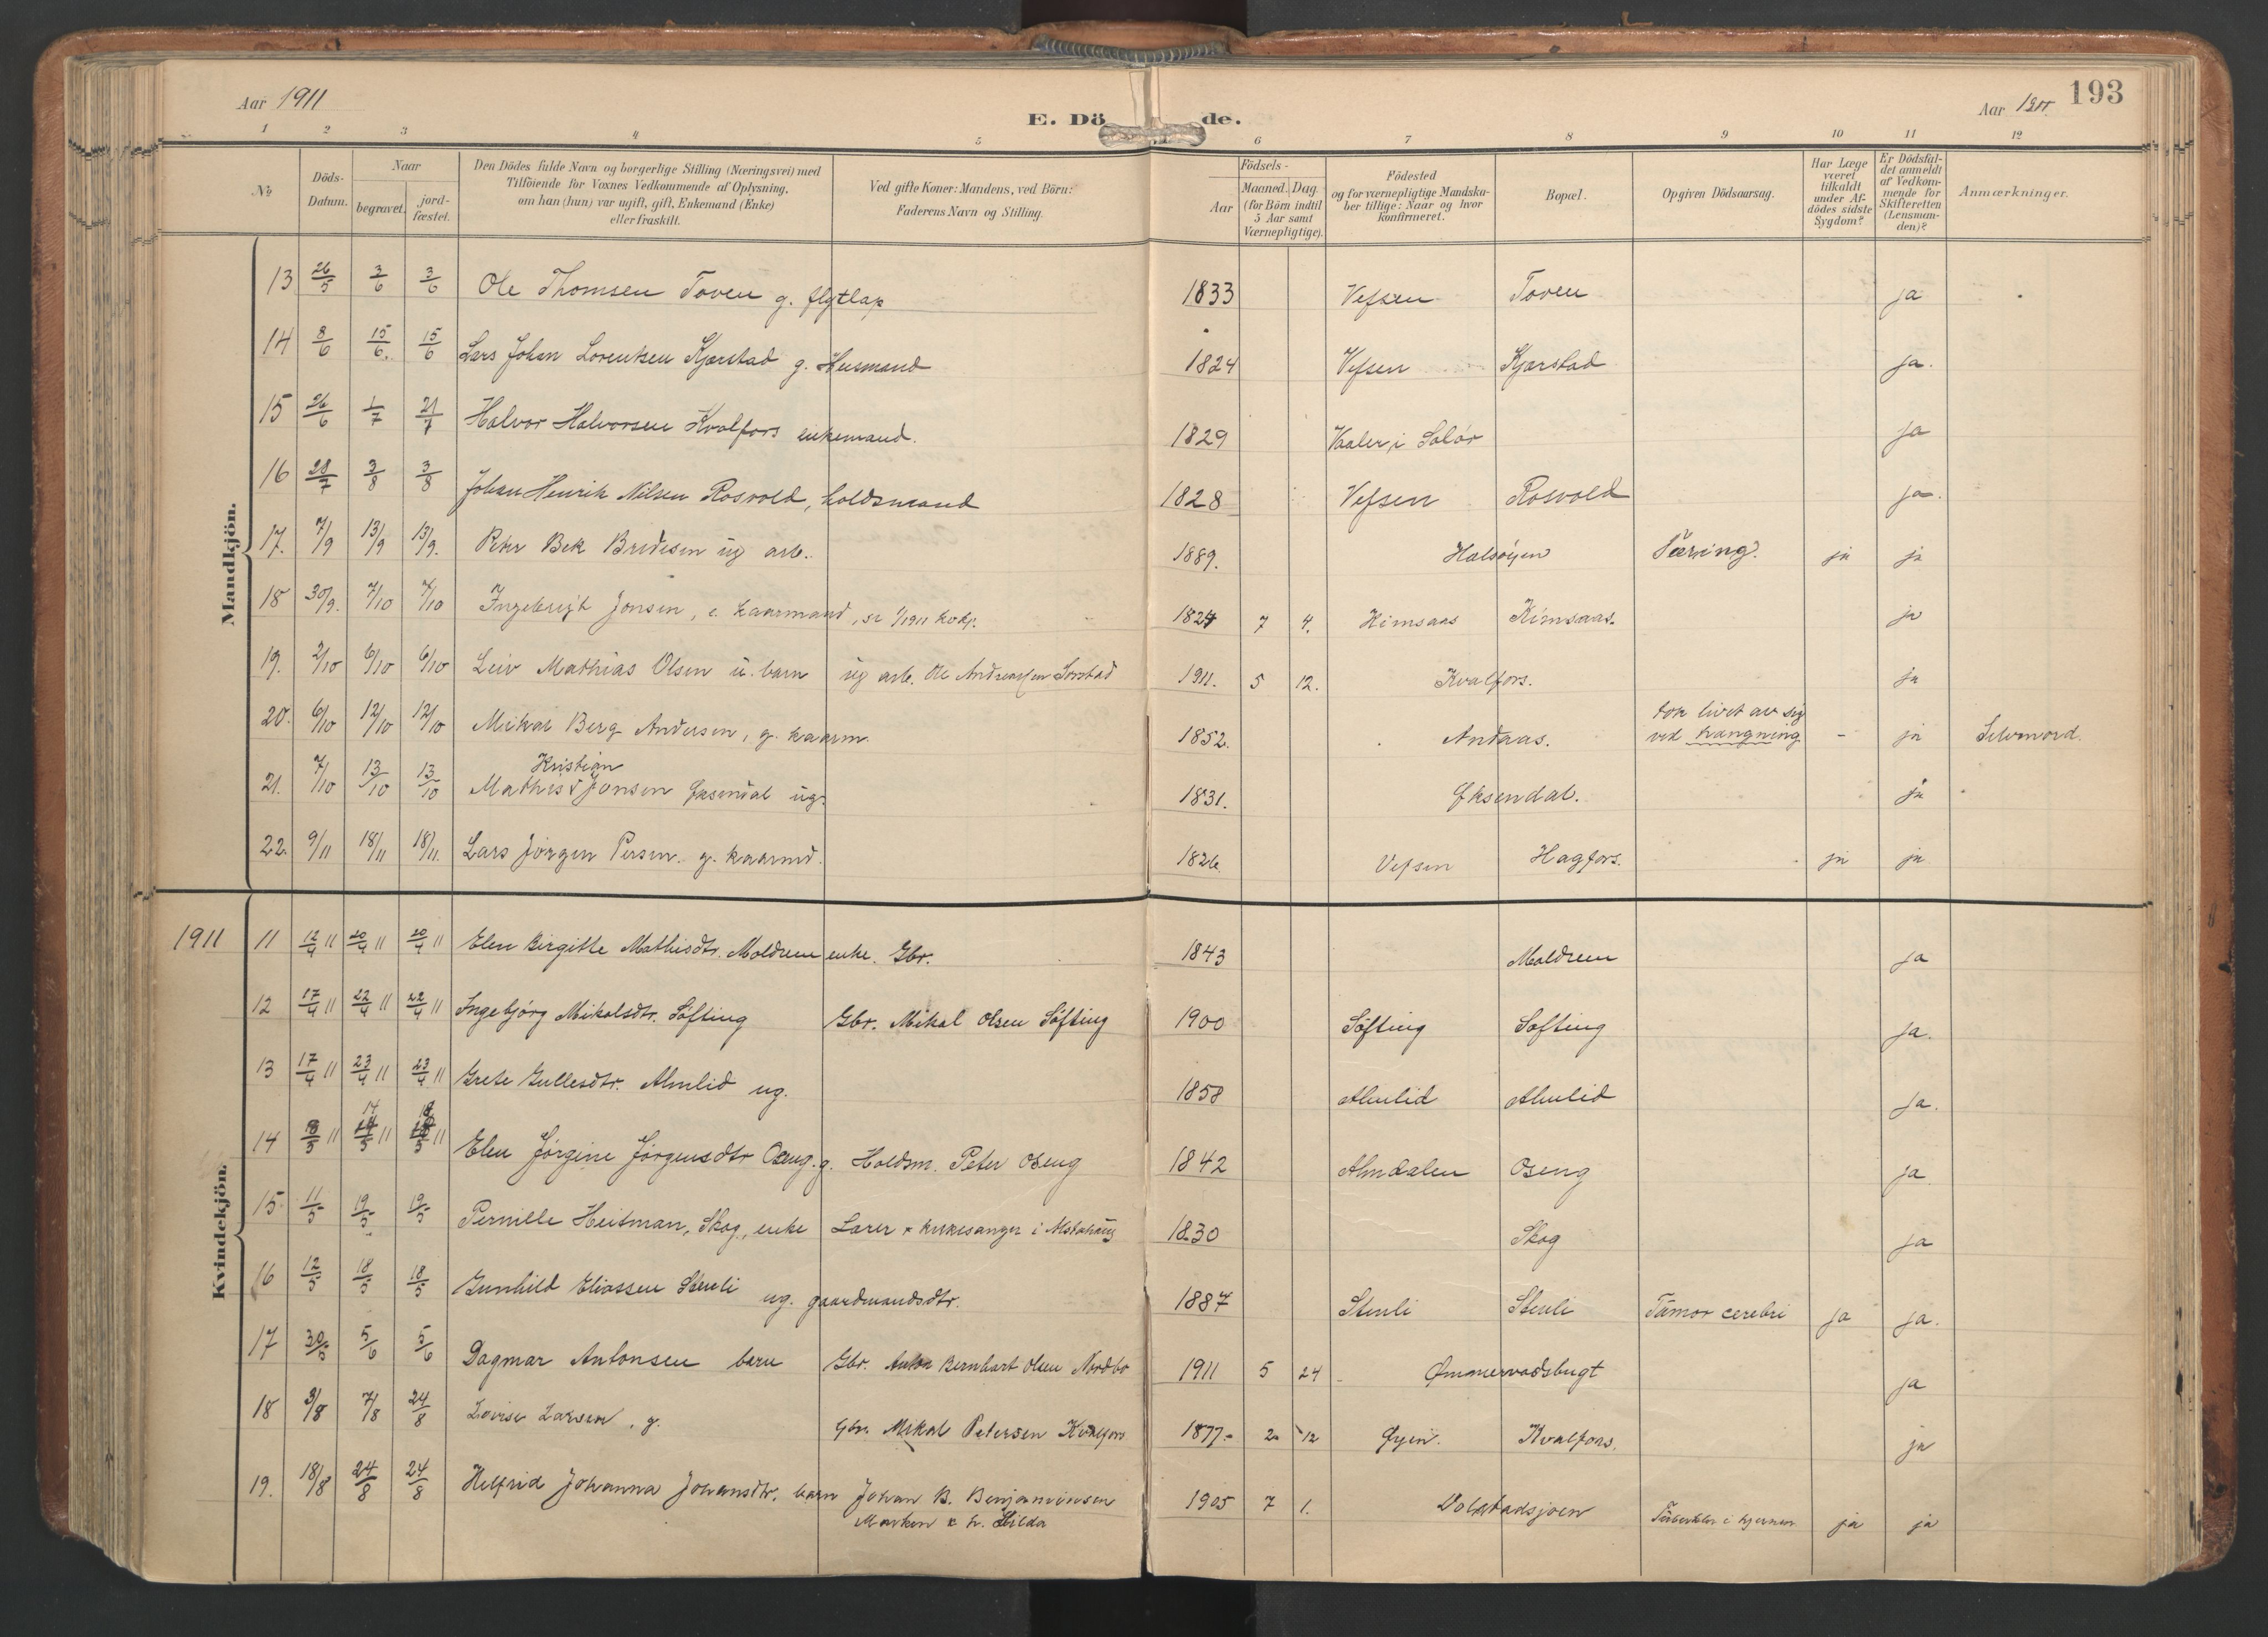 Aar 1911
E. Döde.
Aar 1911. 193
1 2 3 4 5 6 7 8 9 10 11 12
No
Döds-Datum.
Naar
begravet.
jord-fæstet.
Den Dödes fulde Navn og borgerlige Stilling (Næringsvei) med
Tilföiende for Voxnes Vedkommende af Oplysning,
om han (hun) var ugift, gift, Enkemand (Enke)
eller fraskilt.
Ved gifte Koner: Mandens, ved Börn:
Faderens Navn og Stilling.
Födsels-
Aar
Maaned. Dag.
(for Börn indtil
5 Aar samt
Værnepligtige).
Födested
og for værnepligtige Mandska-
ber tillige: Naar og hvor
konfirmeret.
Bopæl.
Opgiven Dödsaarsag.
Har Læge
været
tilkaldt
under Af-
dödes sidste
Sygdom?
Er Dödsfal-
det anmeldt
af Vedkom-
mende for
Skifteretten
(Lensman-
den)?
Anmærkninger.
Mandkjön.
13 26/5 3/6 3/6 Ole Thomsen Toven g. flytlap 1833 Vefsen Toven ja
14 8/6 15/6. 15/6 Lars Johan Lorentsen Kjærstad g. Husmand 1824 Vefsen Kjærstad ja.
15 26/6 1/7 21/7 Halvor Halvorsen Kvalfors enkemand. 1829 Vaaler i Solör ja
16 28/7 3/8 3/8 Johan Henrik Nilsen Rosvold, holdsmand 1828 Vefsen Rosvold ja.
17. 7/9 13/9 13/9. Peter Bek Bredesen ug arb. 1889. Halsöyen Tæring. ja ja
18 30/9. 7/10 7/10 Ingebrigt Jonsen, e. kaarmand, se 1/1911 kodp. 1824 7 4. Kimsaas Kimsaas. ja
19. 2/10 6/10 6/10 Leiv Mathias Olsen u. barn ug arb. Ole Andreassen Sørstad 1911. 5 12. Kvalfors. ja
20. 6/10 12/10 12/10 Mikal Berg Andersen, g. kaarm. 1852. Andaas. tok livet av sig
ved hængning - ja Selvmord.
Kristian
21. 7/10 13/10 13/10 Mathis Jonsen Eksendal ug. 1831. Eksendal. ja
22. 9/11 18/11 18/11. Lars Jörgen Persen. g. kaarmd. 1826. Vefsen Hagfors. ja ja
Kvindekjön.
1911 11 12/4 11 20/4 11 20/4 11 Elen Birgitte Mathisdtr. Moldrem enke. Gbr. 1843 Moldrem ja
12 17/4 11 22/4 11 22/4 11 Ingebjörg Mikalsdtr. Söfting Gbr. Mikal Olsen Söfting 1900 Söfting Söfting ja.
13 17/4 11 23/4 11 23/4 11 Grete Gullesdtr. Almlid ug. 1858 Almlid Almlid ja.
14 8/5 11 14/5 11 11 Elen Jörgine Jörgensdtr Oseng. g. Holdsm. Peter Oseng 1842 Almdalen Oseng ja
15. 11/5 19/5 19/5 Pernille Heitman, Skog, enke Lærer & kirkesanger i Alstahaug 1830 Skog ja
16 12/5 18/5 18/5 Gunhild Eliassen Stenli ug. gaardmandsdtr. 1887 Stenli Stenli Tumor cerebri ja ja.
17 30/5 5/6 5/6 Dagmar Antonsen barn Gbr. Anton Bernhart Olsen Nordbo 1911 5 24 Ømmervadsbugt ja
18 3/8 7/8 24/8 Lovise Larsen. g. Gbr. Mikal Petersen Kvalfors 1877. 2. 12 Øyen. Kvalfors. ja
19. 18/8 24/8 24/8 Helfrid Johanna Johansdtr. barn Johan B. Benjaminsen 1905 7 1. Dolstadsjoen Tuberkler i hjernen ja ja
Marken & h. Hilda